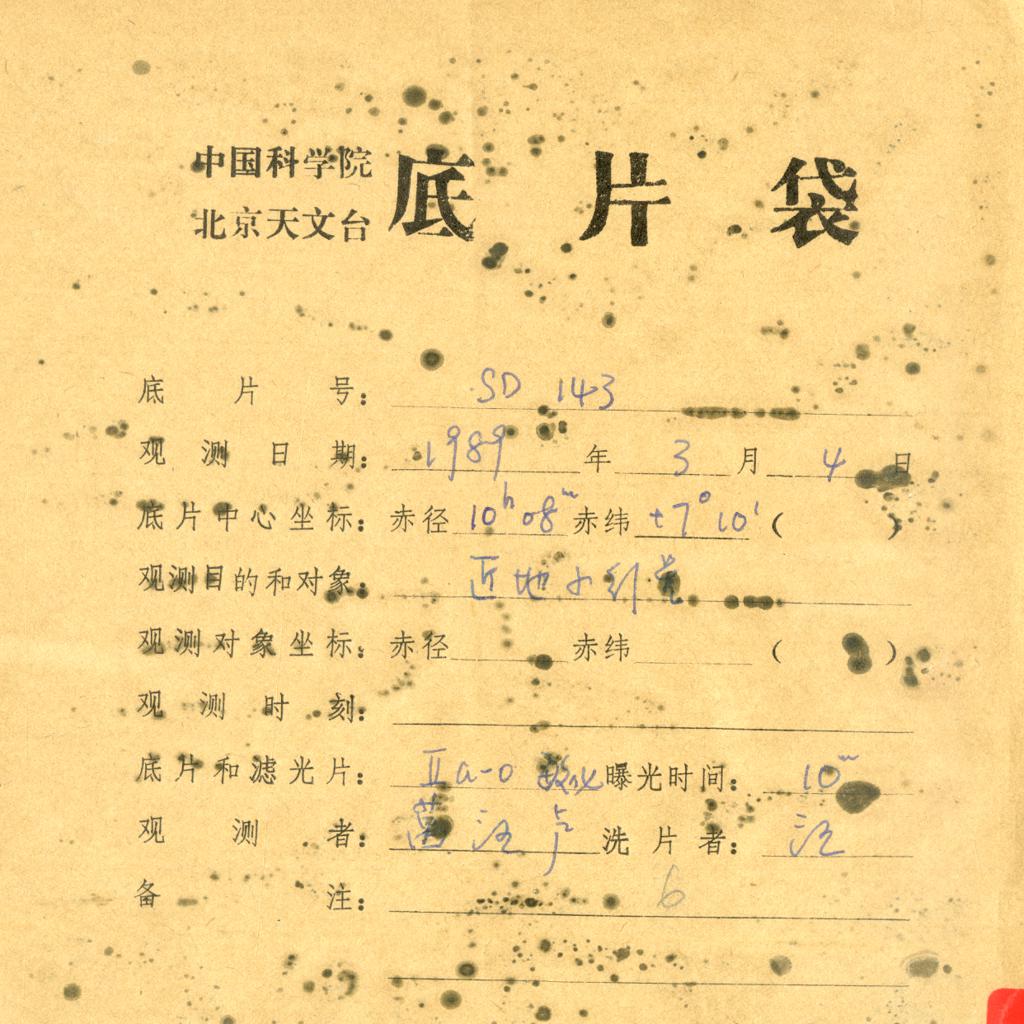 中国科学院
北京天文台
底片袋
底片号: SD 143
观测日期: 1989年3月4日
底片中心坐标: 赤径 10h 08m 赤纬 +7° 10' ( )
观测目的和对象: 近地小行星
观测对象坐标: 赤径 赤纬 ( )
观测时刻:
底片和滤光片: IIa-O 敏化 曝光时间: 10m
观测者: 汪 卢 洗片者: 汪
备注: 6